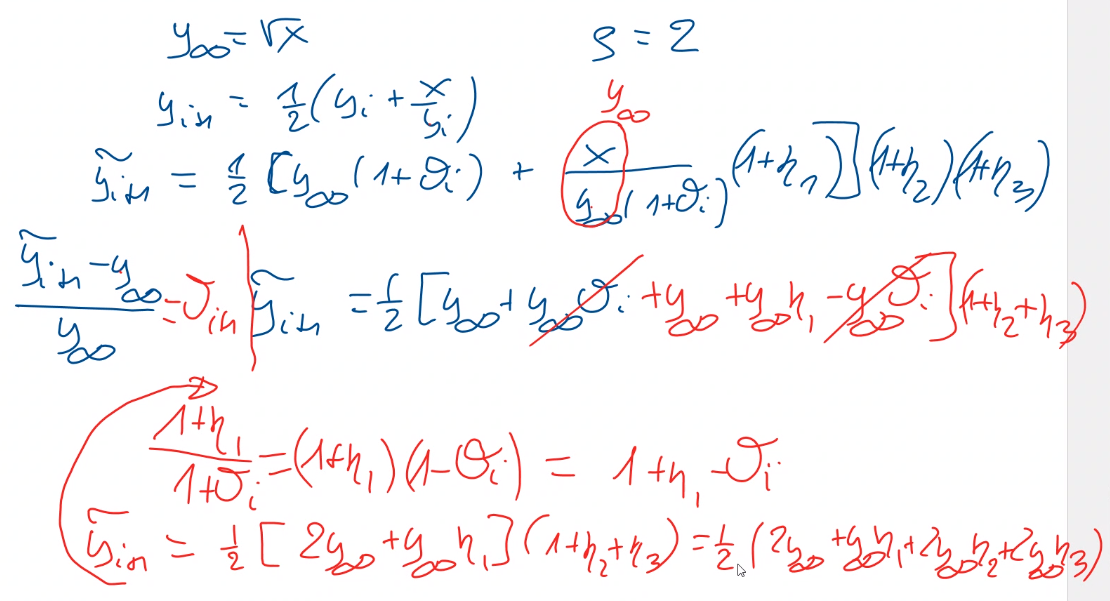 y∞ = √x    S = 2
y∞
yᵢ₊₁ = 1/2 (yᵢ + x/yᵢ)
ỹᵢ₊₁ = 1/2 [y∞(1+ϑᵢ) + x/(y∞(1+ϑᵢ)) (1+η₁)](1+η₂)(1+η₃)
(ỹᵢ₊₁ - y∞)/y∞ = ϑᵢ₊₁ | ỹᵢ₊₁ = 1/2 [y∞ + y∞ϑᵢ + y∞ + y∞η₁ - y∞ϑᵢ](1+η₂+η₃)
(1+η₁)/(1+ϑᵢ) = (1+η₁)(1-ϑᵢ) = 1+η₁-ϑᵢ
ỹᵢ₊₁ = 1/2 [2y∞ + y∞η₁](1+η₂+η₃) = 1/2 (2y∞ + y∞η₁ + 2y∞η₂ + 2y∞η₃)